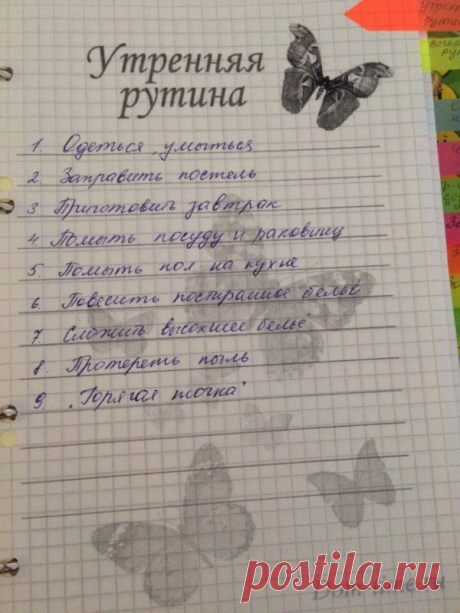 Утренняя
рутина
1. Одеться, умыться
2. Заправить постель
3. Приготовить завтрак
4. Помыть посуду и раковину
5. Помыть пол на кухне
6. Повесить постиранное бельё
7. Сложить высохшее бельё
8. Протереть пыль
9. "Горячая точка"
postila.ru